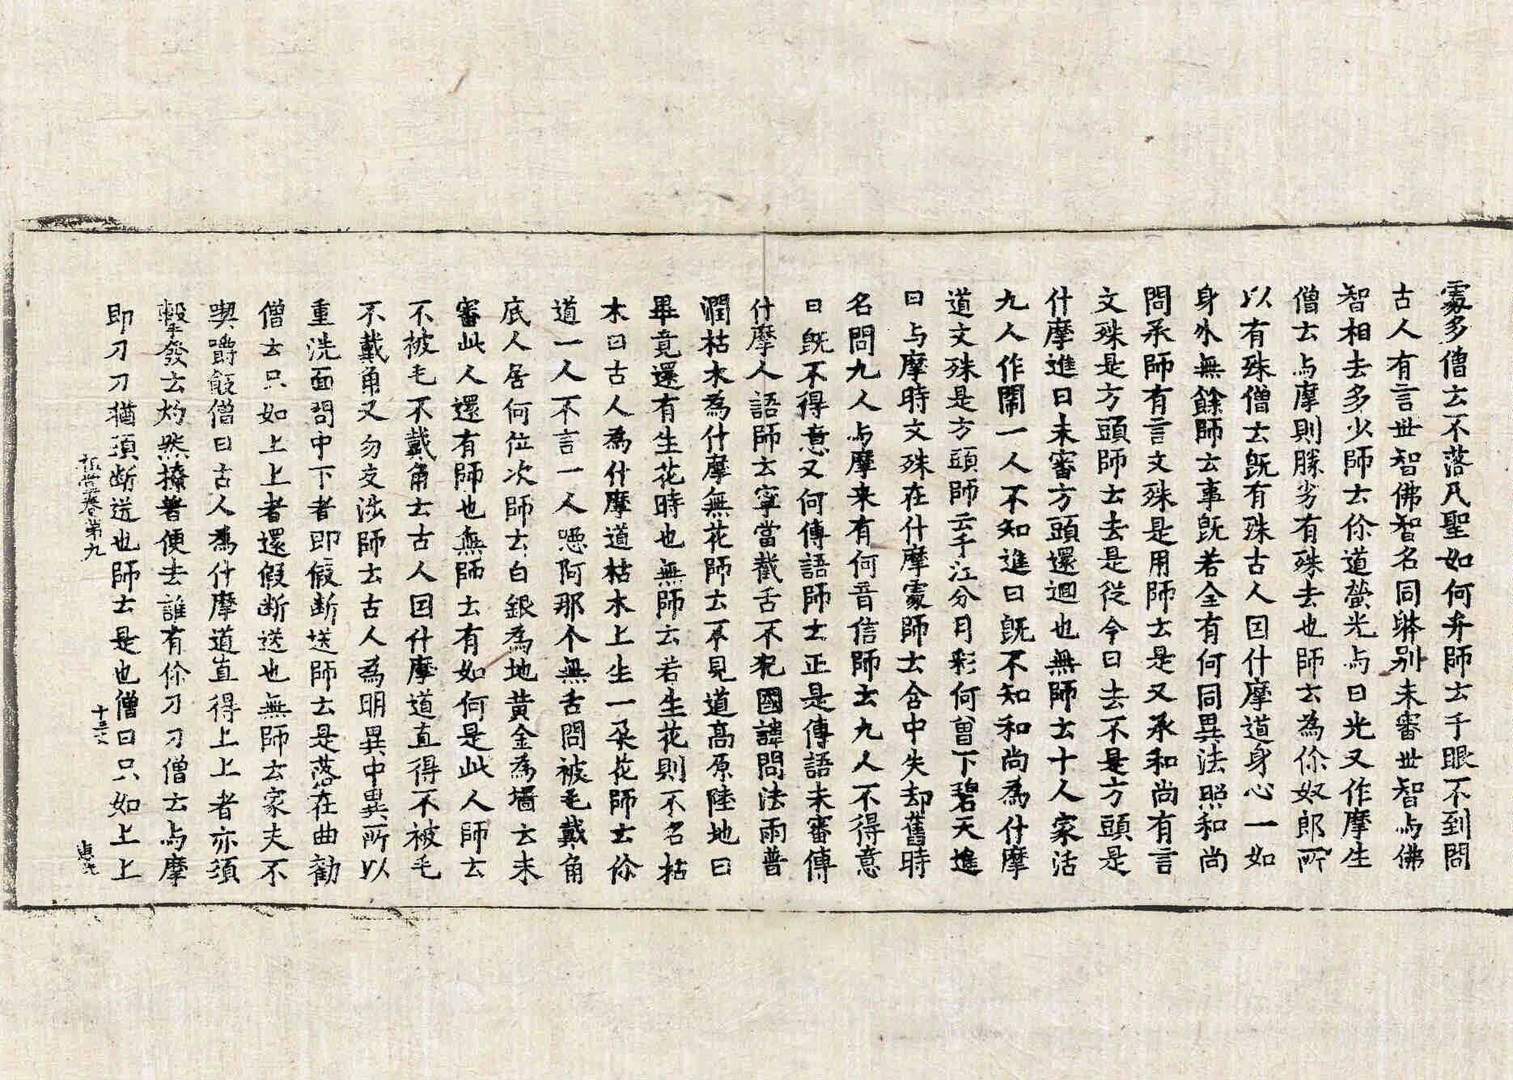 霧多僧云不落凡聖如何弁師云千眼不到問
古人有言世智佛智名同躰別未審世智与佛
智相去多少師云你道螢光与日光又作摩生
僧云与摩則勝劣有殊去也師云為你奴郎所
以有殊僧云旣有殊古人因什摩道身心一如
身外無餘師云事旣若全有何同異法照和尚
問承師有言文殊是用師云是又承和尚有言
文殊是方頭師云去是從今日去不是方頭是
什摩進曰未審方頭還迴也無師云十人家活
九人作鬧一人不知進曰旣不知和尚為什摩
道文殊是方頭師云千江分月彩何曾下碧天進
曰与摩時文殊在什摩處師云含中失却舊時
名問九人与摩来有何音信師云九人不得意
曰旣不得意又何傳語師云正是傳語未審傳
什摩人語師云寧當截舌不犯國諱問法雨普
潤枯木為什摩無花師云不見道高原陸地曰
畢竟還有生花時也無師云若生花則不名枯
木曰古人為什摩道枯木上生一朶花師云你
道一人不言一人嗯阿那个無舌問被毛戴角
底人居何位次師云白銀為地黃金為墻云未
審此人還有師也無師云有如何是此人師云
不被毛不戴角云古人因什摩道直得不被毛
不戴角又勿交涉師云古人為明異中異所以
重洗面問中下者即假斷送師云是落在曲勸
僧云只如上上者還假斷送也無師云家夫不
喫嚼飯僧曰古人為什摩道直得上上者亦須
擊發云灼然撩著便去誰有你刀刀僧云与摩
即刀刀猶須斷送也師云是也僧曰只如上上
祖堂卷第九